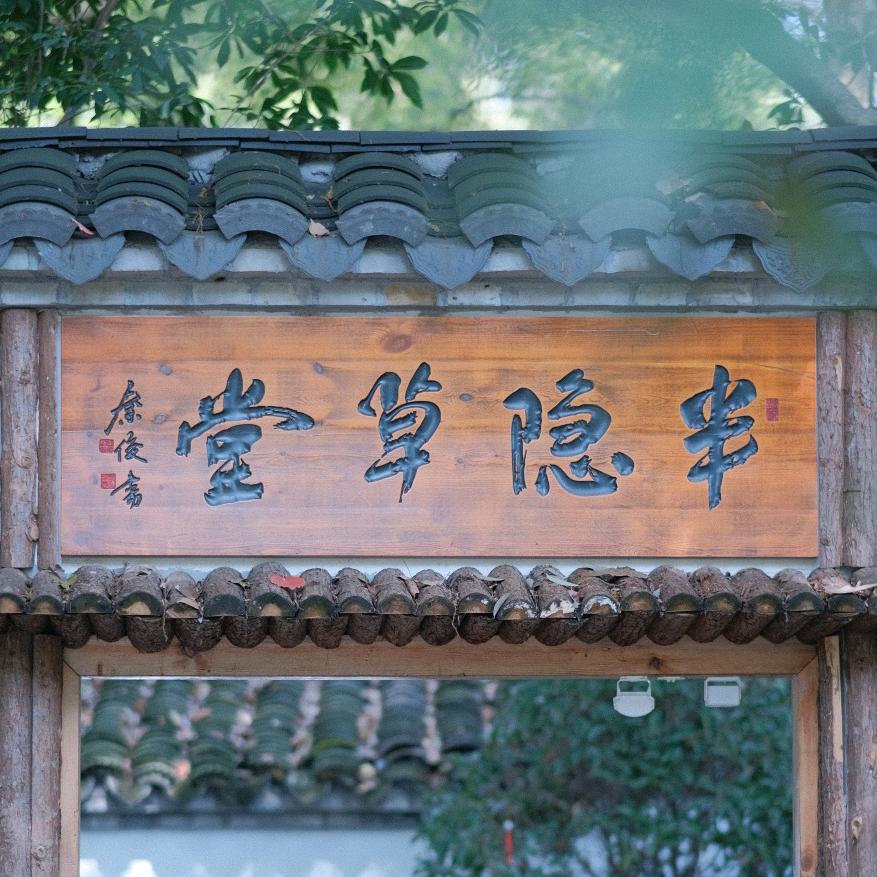 半隐草堂
秦俊书